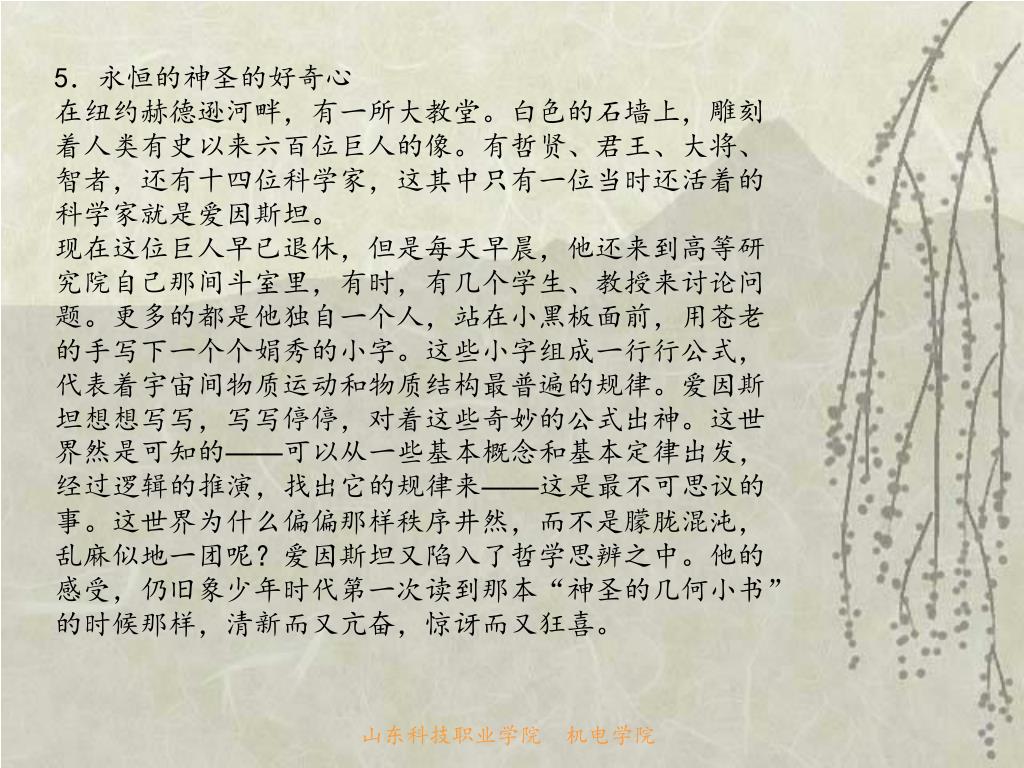 5．永恒的神圣的好奇心
在纽约赫德逊河畔，有一所大教堂。白色的石墙上，雕刻
着人类有史以来六百位巨人的像。有哲贤、君王、大将、
智者，还有十四位科学家，这其中只有一位当时还活着的
科学家就是爱因斯坦。
现在这位巨人早已退休，但是每天早晨，他还来到高等研
究院自己那间斗室里，有时，有几个学生、教授来讨论问
题。更多的都是他独自一个人，站在小黑板面前，用苍老
的手写下一个个娟秀的小字。这些小字组成一行行公式，
代表着宇宙间物质运动和物质结构最普遍的规律。爱因斯
坦想想写写，写写停停，对着这些奇妙的公式出神。这世
界然是可知的——可以从一些基本概念和基本定律出发，
经过逻辑的推演，找出它的规律来——这是最不可思议的
事。这世界为什么偏偏那样秩序井然，而不是朦胧混沌，
乱麻似地一团呢？爱因斯坦又陷入了哲学思辨之中。他的
感受，仍旧象少年时代第一次读到那本“神圣的几何小书”
的时候那样，清新而又亢奋，惊讶而又狂喜。
山东科技职业学院　机电学院